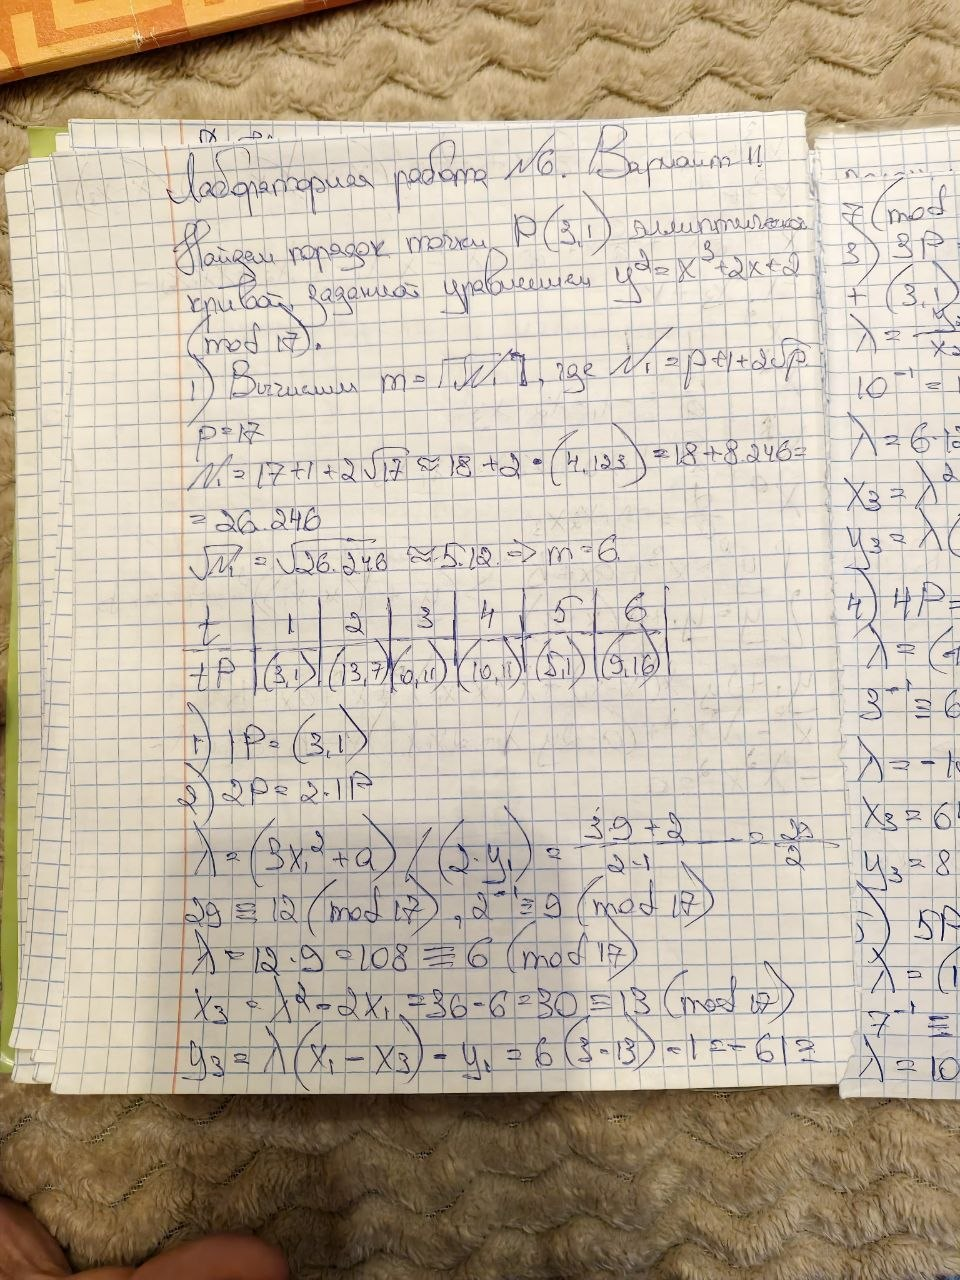 Лабораторная работа №6. Вариант 11
Найдем порядок точки P(3,1) эллиптической
кривой, заданной уравнением y² = x³+2x+2
(mod 17).
1) Вычислим m = ⌈√N₁⌉, где N₁ = p+1+2√p.
p=17
N₁ = 17+1+2√17 ≈ 18 + 2 · (4.123) = 18+8.246=
= 26.246
√N₁ = √26.246 ≈ 5.12 => m=6.
t | 1 | 2 | 3 | 4 | 5 | 6
tP | (3,1) | (13,7) | (0,11) | (10,11) | (5,1) | (9,16)
1) 1P= (3,1)
2) 2P= 2·1P
λ = (3x₁²+a) / (2·y₁) = (3·9+2)/(2·1) = 29/2
29 ≡ 12 (mod 17), 2⁻¹ ≡ 9 (mod 17)
λ = 12·9 = 108 ≡ 6 (mod 17)
x₃ = λ² - 2x₁ = 36-6=30 ≡ 13 (mod 17)
y₃ = λ(x₁ - x₃) - y₁ = 6(3-13) -1 = -61 ≡
7 (mod
3) 3P =
+ (3,1)
λ =
10⁻¹ =
λ = 6·12
x₃ = λ²
y₃ = λ(
4) 4P=
λ = (
3⁻¹ ≡ 6
λ = -1
x₃ = 64
y₃ = 8
5) 5P
λ = (1
7⁻¹ ≡
λ = 10